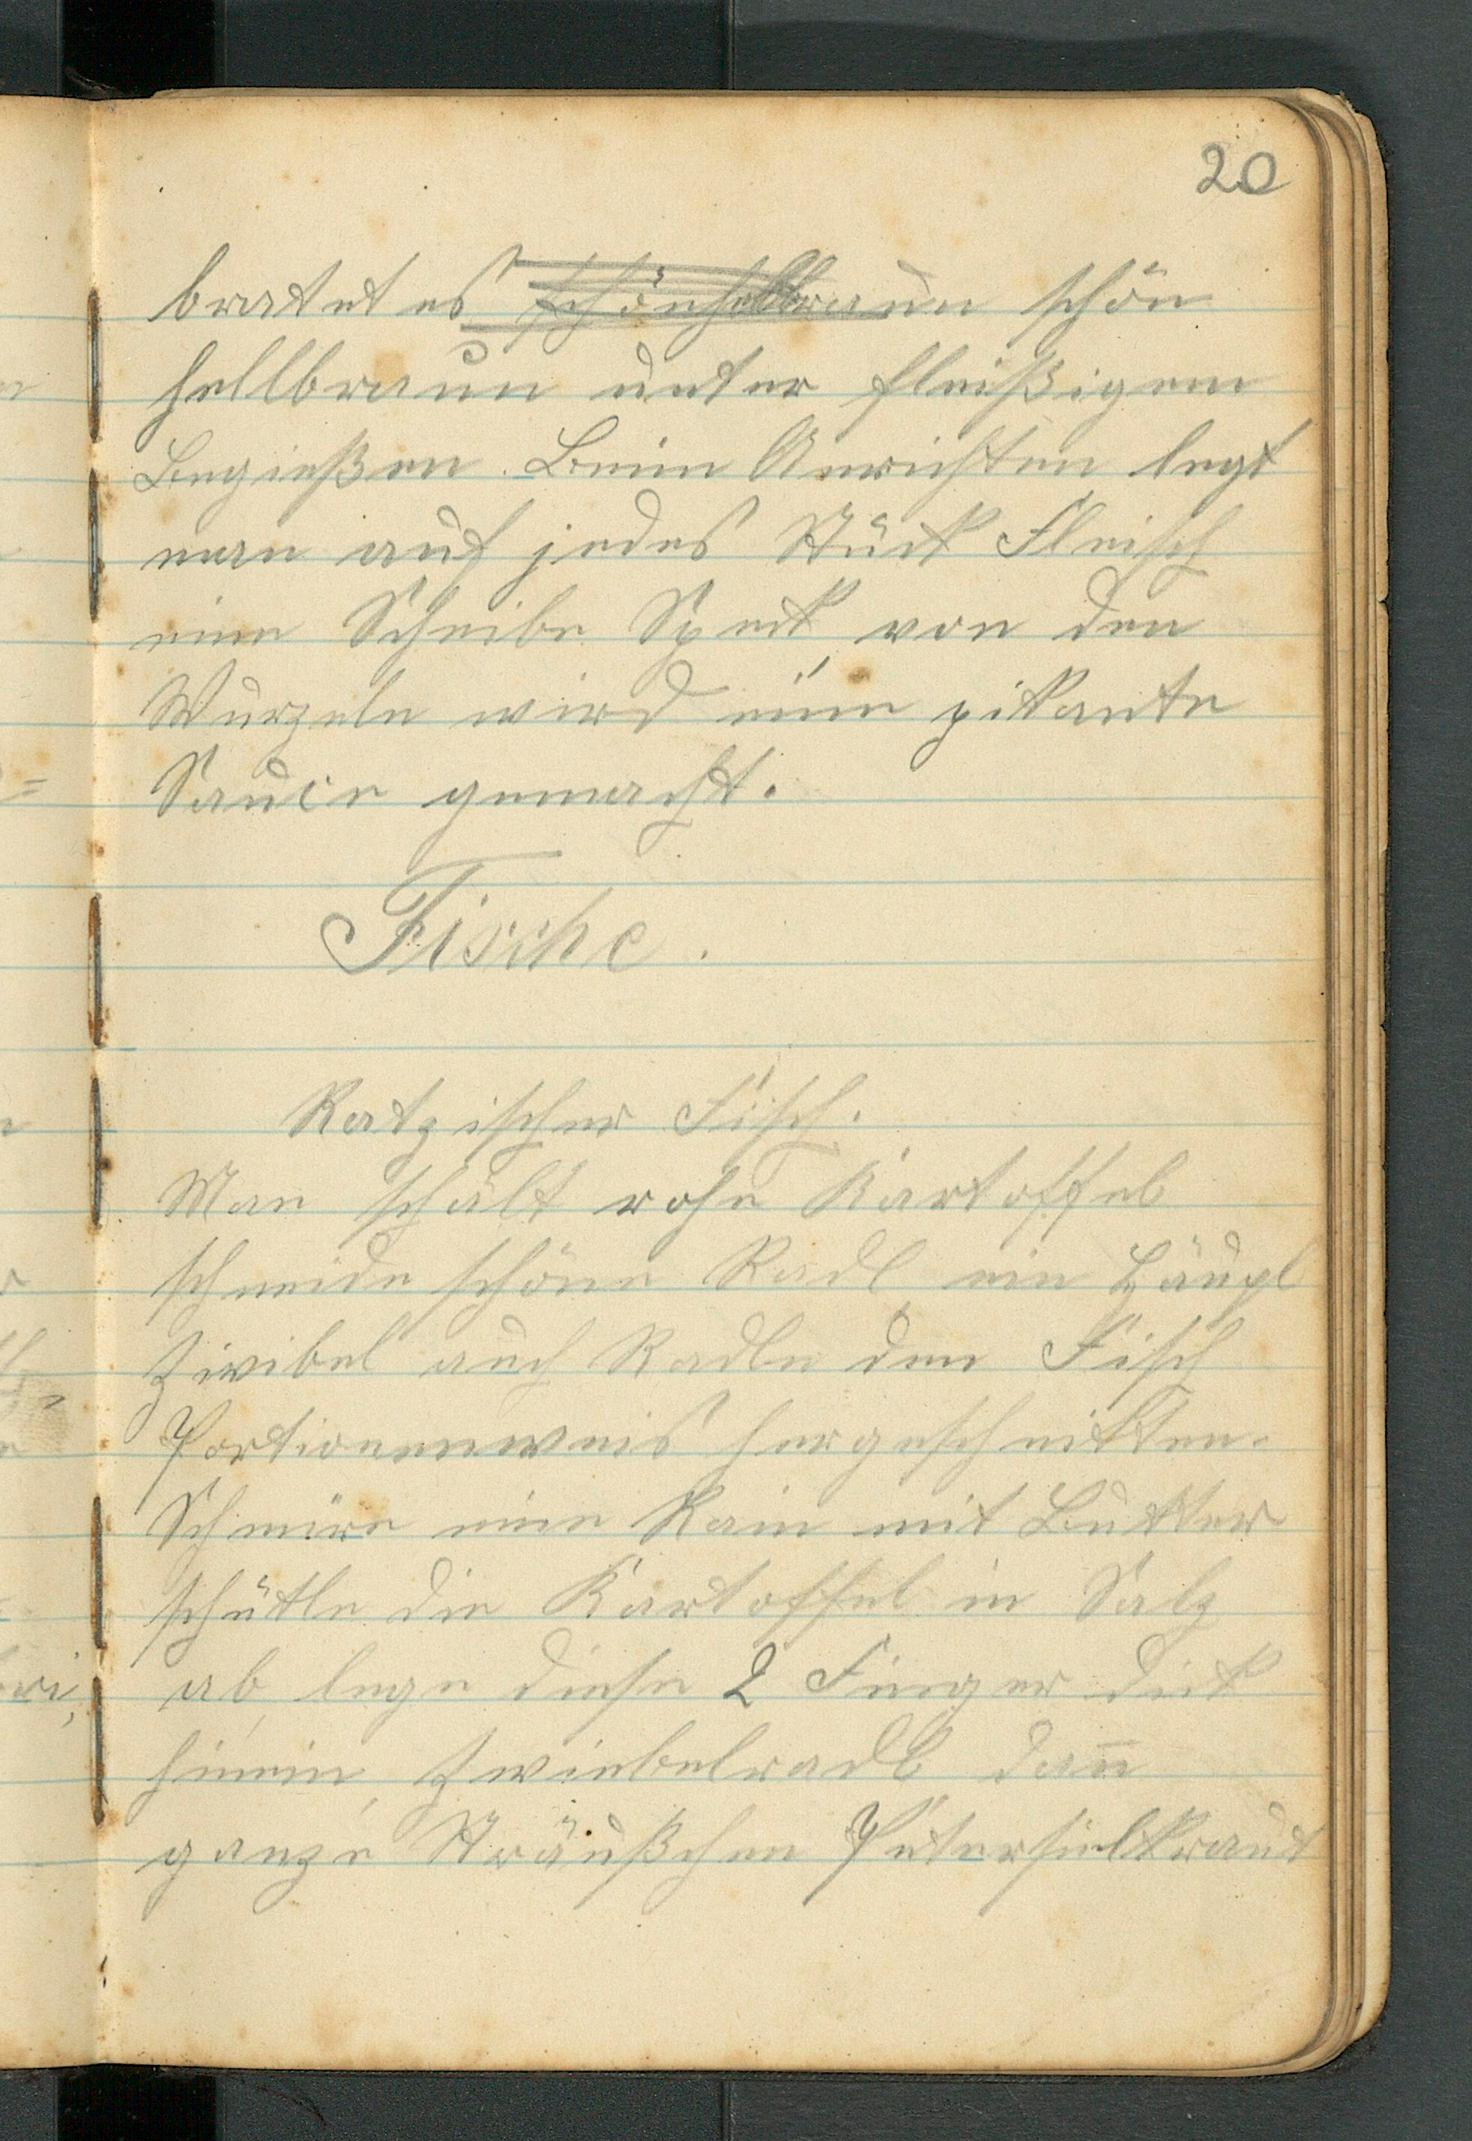 20
bratet es schönhellbraun schön
hellbraun unter fleißigem
Begießen. Beim Anrichten legt
man auf jedes Stück Fleisch
eine Scheibe Speck, von den
Wurzeln wird eine pikante
Sauce gemacht.
Fische.
Ratzischer Fisch.
Man schält rohe Kartoffel
schneide schöne Radl, ein Häupl
Zwibel auch Radln den Fisch
Portionenweis hergeschnitten.
Schmire eine Rain mit Butter
schütle die Kartoffel in Salz
ab, lege diese 2 Finger dick
hinein, Zwiebelradl dan̅
ganze Sträußchen Petersielkraut